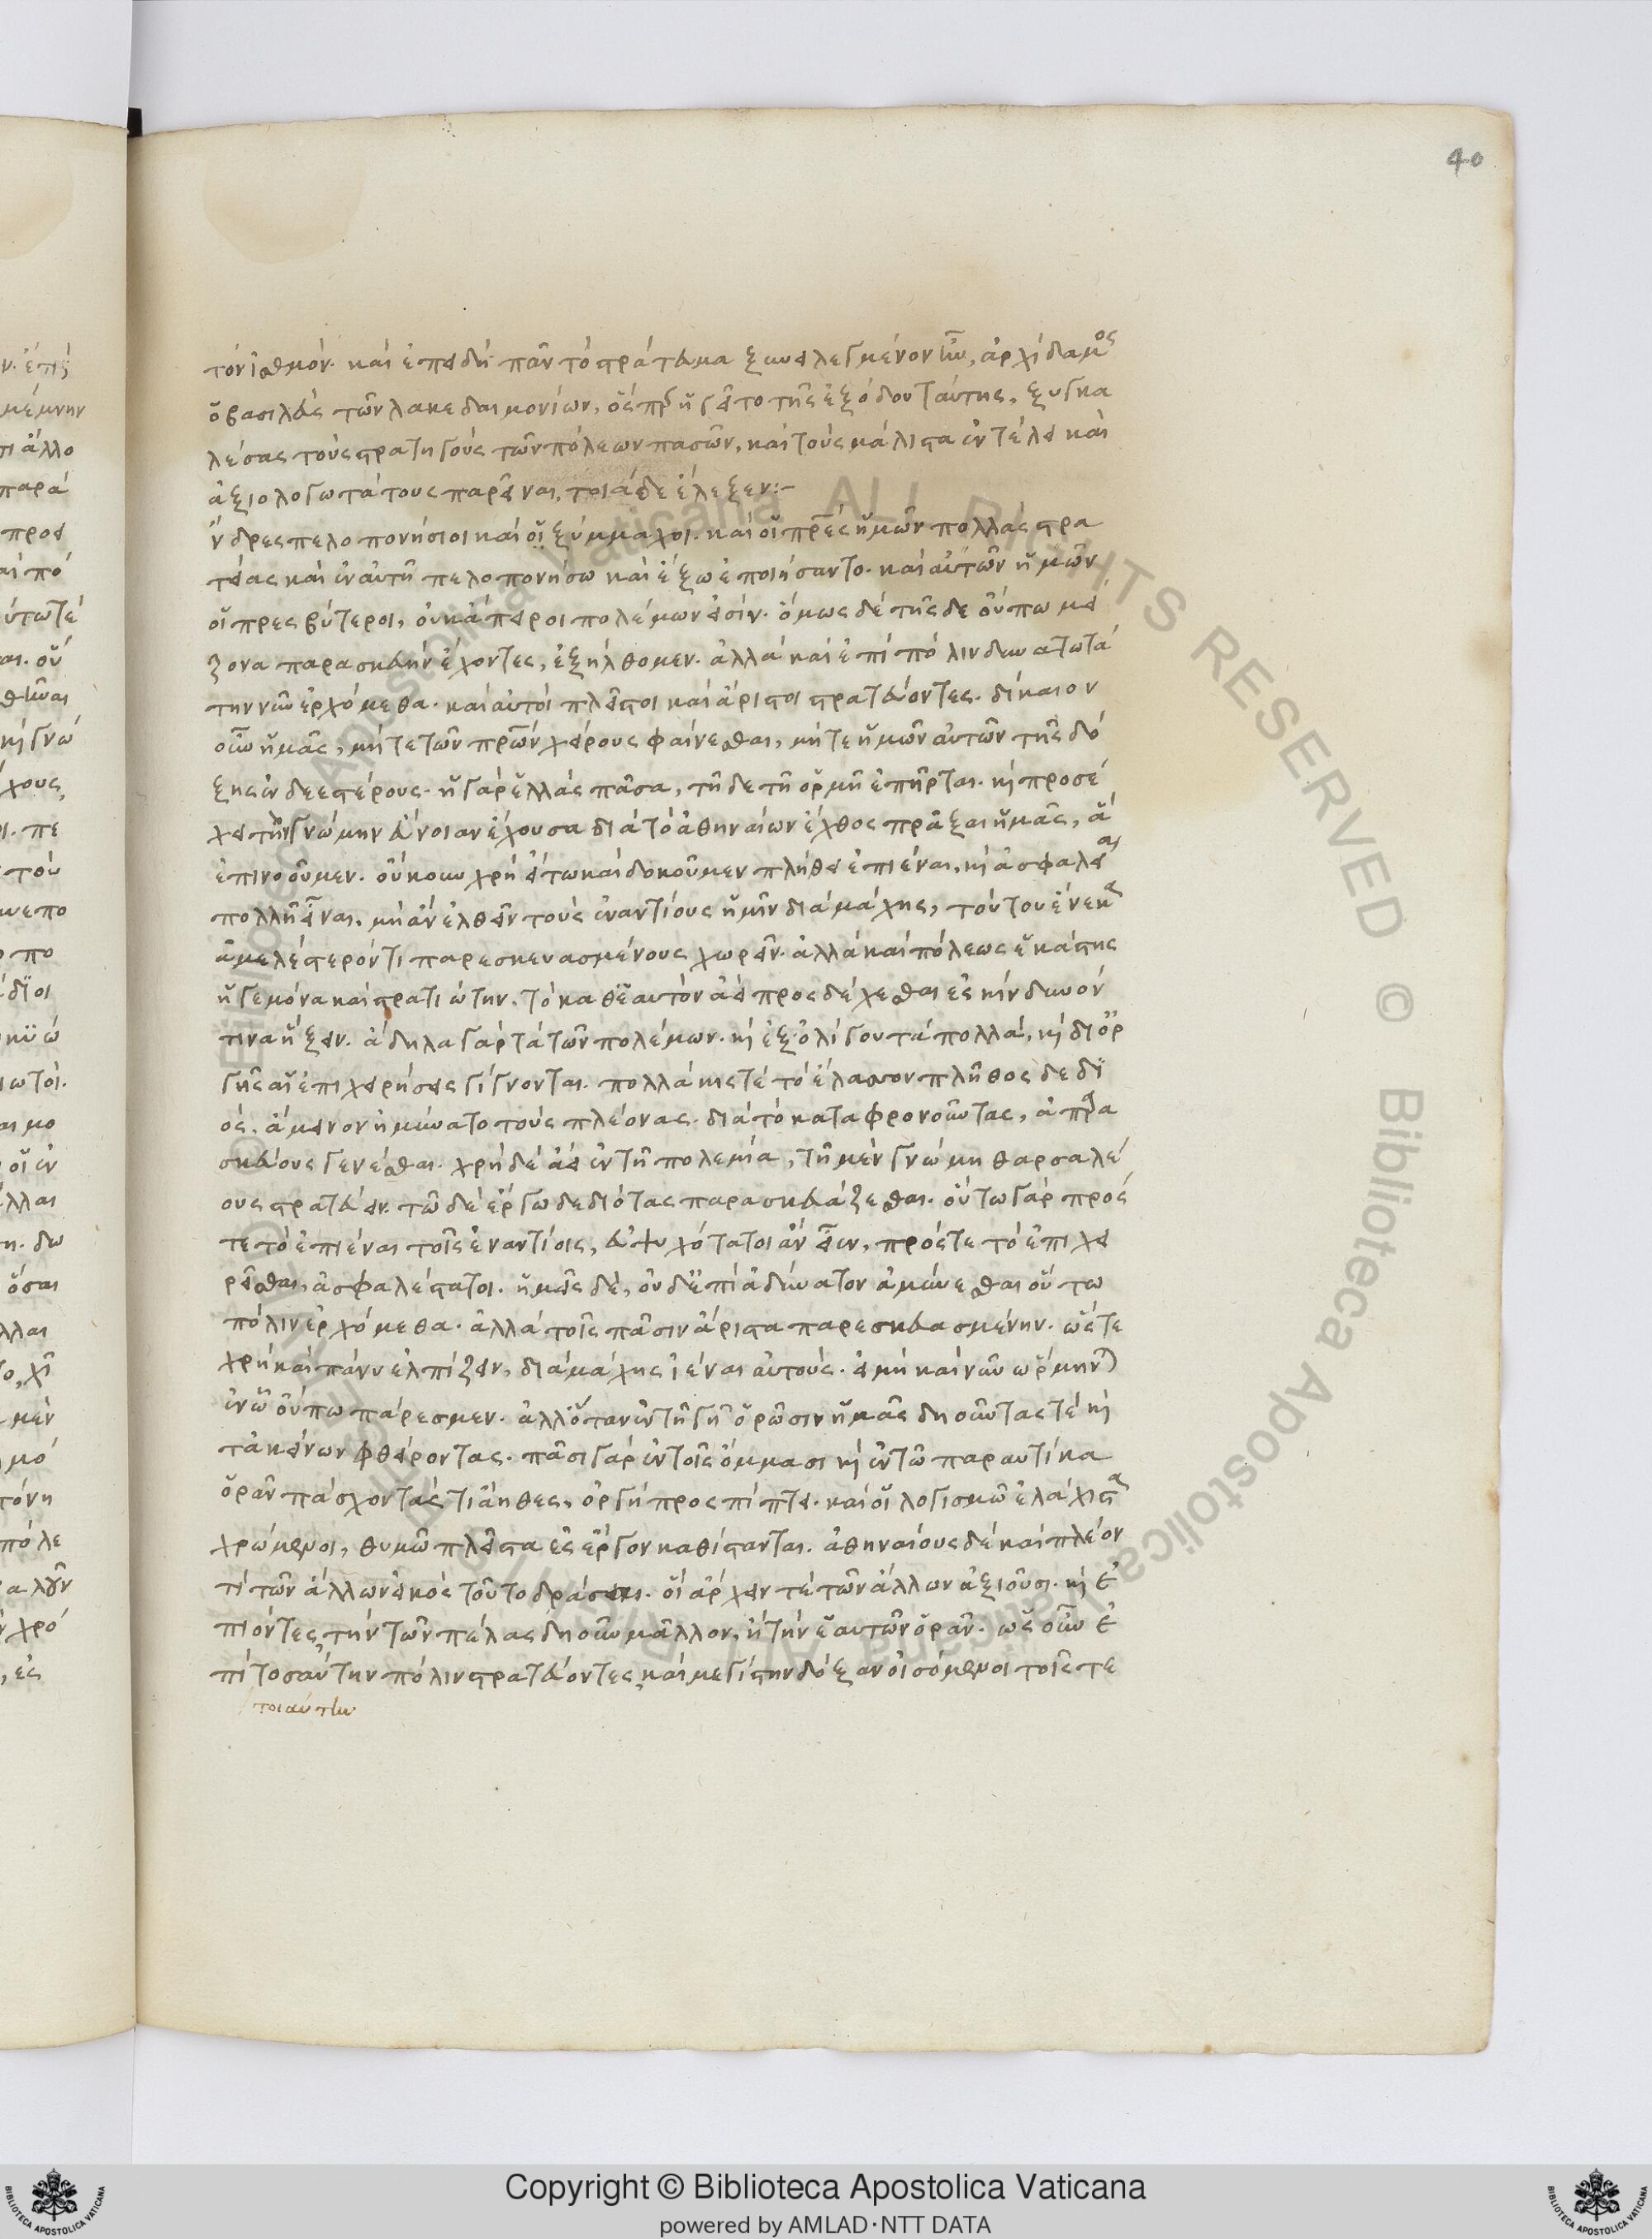 40
τὸν ἰσθμόν. καὶ ἐπειδὴ πᾶν τὸ στράτευμα ξυνειλεγμένον ἦν, ἀρχίδαμος
ὁ βασιλεὺς τῶν λακεδαιμονίων, ὅσπερ ἡγεῖτο τῆς ἐξόδου ταύτης, ξυγκα
λέσας τοὺς στρατηγοὺς τῶν πόλεων πασῶν, καὶ τοὺς μάλιστα ἐν τέλει καὶ
ἀξιολογωτάτους παρεῖναι, τοιάδε ἔλεξεν:-
ν́δρες πελοπονήσιοι καὶ οἱ ξύμμαχοι. καὶ οἱ πρες ἡμῶν πολλὰς στρα
τείας καὶ ἐν αὐτῆ πελοπονήσω καὶ ἔξω ἐποιήσαντο. καὶ αὐτῶν ἡμῶν
οἱ πρεσβύτεροι, οὐκ ἄπειροι πολέμων εἰσίν. ὅμως δὲ τῆσδε οὔπω μεί
ζονα παρασκευὴν ἔχοντες, ἐξήλθομεν. ἀλλὰ καὶ ἐπὶ πόλιν δυνατωτά
την νῦν ἐρχόμεθα. καὶ αὐτοὶ πλεῖστοι καὶ ἄριστοι στρατεύοντες. δίκαιον
οὖν ἡμᾶς, μήτε τῶν πρων χείρους φαίνεσθαι, μήτε ἡμῶν αὐτῶν τῆς δό
ξης ἐνδεεστέρους. ἡ γὰρ ἑλλὰς πᾶσα, τῆδε τῆ ὁρμῆ ἐπῆρται. κὶ προσέ
χει τὴν γνώμην εὔνοιαν ἔχουσα διὰ τὸ ἀθηναίων ἔχθος πρᾶξαι ἡμᾶς, ἃ
ἐπινοοῦμεν. οὔκουν χρὴ εἴτω καὶ δοκοῦμεν πλήθει ἐπιέναι, κὶ ἀσφάλεια
πολλῆ εἶναι, μὴ ἂν ἐλθεῖν τοὺς ἐναντίους ἡμῖν διὰ μάχης, τούτου ἕνεκα
ἀμελέστερόν τι παρεσκευασμένους χωρεῖν. ἀλλὰ καὶ πόλεως ἑκάστης
ἡγεμόνα καὶ στρατιώτην. τὸ καθ' ἑαυτὸν ἀεὶ προσδέχεσθαι ἐς κίνδυνόν
τινα ἥξειν. ἄδηλα γὰρ τὰ τῶν πολέμων. κὶ ἐξ ὀλίγου τὰ πολλὰ, κὶ δι' ὀρ
γῆς αἱ ἐπιχειρήσεις γίγνονται. πολλάκις τὲ τὸ ἔλασσον πλῆθος δεδι
ὸς, ἄμεινον ἠμύνατο τοὺς πλέονας. διὰ τὸ καταφρονοῦντας, ἀπαρα
σκεύους γενέσθαι. χρὴ δὲ ἀεὶ ἐν τῆ πολεμία, τῆ μὲν γνώμη θαρσαλέ
ους στρατεύειν. τῶ δὲ ἔργω δεδιότας παρασκευάζεσθαι. οὕτω γὰρ πρός
τε τὸ ἐπιέναι τοῖς ἐναντίοις, εὐψυχότατοι ἂν εἶεν, πρός τε τὸ ἐπιχει
ρεῖσθαι, ἀσφαλέστατοι. ἡμεῖς δὲ, οὐδ' ἐπὶ ἀδύνατον ἀμύνεσθαι οὕτω
πόλιν ἐρχόμεθα. ἀλλὰ τοῖς πᾶσιν ἄριστα παρεσκευασμένην. ὥστε
χρὴ καὶ πάνυ ἐλπίζειν, διὰ μάχης ἰέναι αὐτούς. εἰ μὴ καὶ νῦν ὥρμην
ἐν ὧ οὔπω πάρεσμεν. ἀλλ' ὅταν ἐν τῆ γῆ ὁρῶσιν ἡμᾶς δηοῦντας τὲ κὶ
τἀκείνων φθείροντας. πᾶσι γὰρ ἐν τοῖς ὄμμασι κὶ ἐν τῶ παραυτίκα
ὁρᾶν πάσχοντάς τι ἄηθες, ὀργὴ προσπίπτει. καὶ οἱ λογισμῶ ἐλάχιστα
χρώμενοι, θυμῶ πλεῖστα ἐς ἔργον καθίστανται. ἀθηναίους δὲ καὶ πλέον
τι τῶν ἄλλων εἰκὸς τοῦτο δράσειν. οἳ ἄρχειν τὲ τῶν ἄλλων ἀξιοῦσι. κὶ ἐ
πιόντες τὴν τῶν πέλας δηοῦν μᾶλλον, ἢ τὴν ἑαυτῶν ὁρᾶν. ὡς οὖν ἐ
πὶ τοσαύτην πόλιν στρατεύοντες, καὶ μεγίστην δόξαν οἰσόμενοι τοῖς τε
τοιαύτην
Copyright © Biblioteca Apostolica Vaticana
powered by AMLAD·NTT DATA